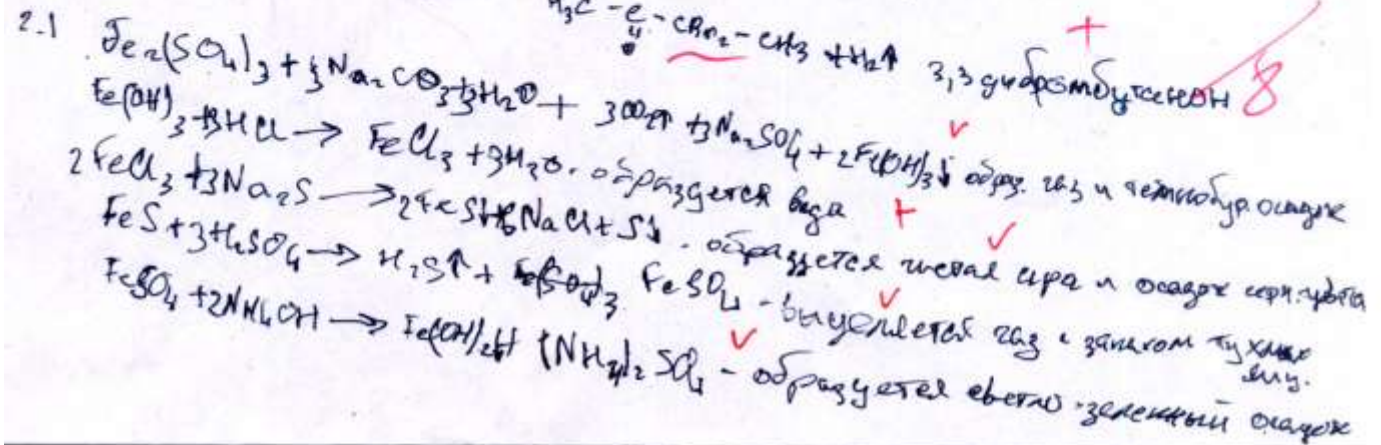 H₃C - C - CBr₂ - CH₃ + H₂↑ 3,3 дибромбутанон + 8
O
2.1 Fe₂(SO₄)₃ + 3Na₂CO₃ + 3H₂O + 3CO₂↑ + 3Na₂SO₄ + 2Fe(OH)₃↓ образ. газ и темнобур осадок
Fe(OH)₃ + 3HCl → FeCl₃ + 3H₂O. образуется вода +
2FeCl₃ + 3Na₂S → 2FeS + 6NaCl + S↓. образуется чистая сера и осадок черн. цвета
FeS + H₂SO₄ → H₂S↑ + FeSO₄ - выделяется газ с запахом тухлых яиц.
FeSO₄ + 2NH₄OH → Fe(OH)₂↓ + (NH₄)₂SO₄ - образуется светло-зеленный осадок